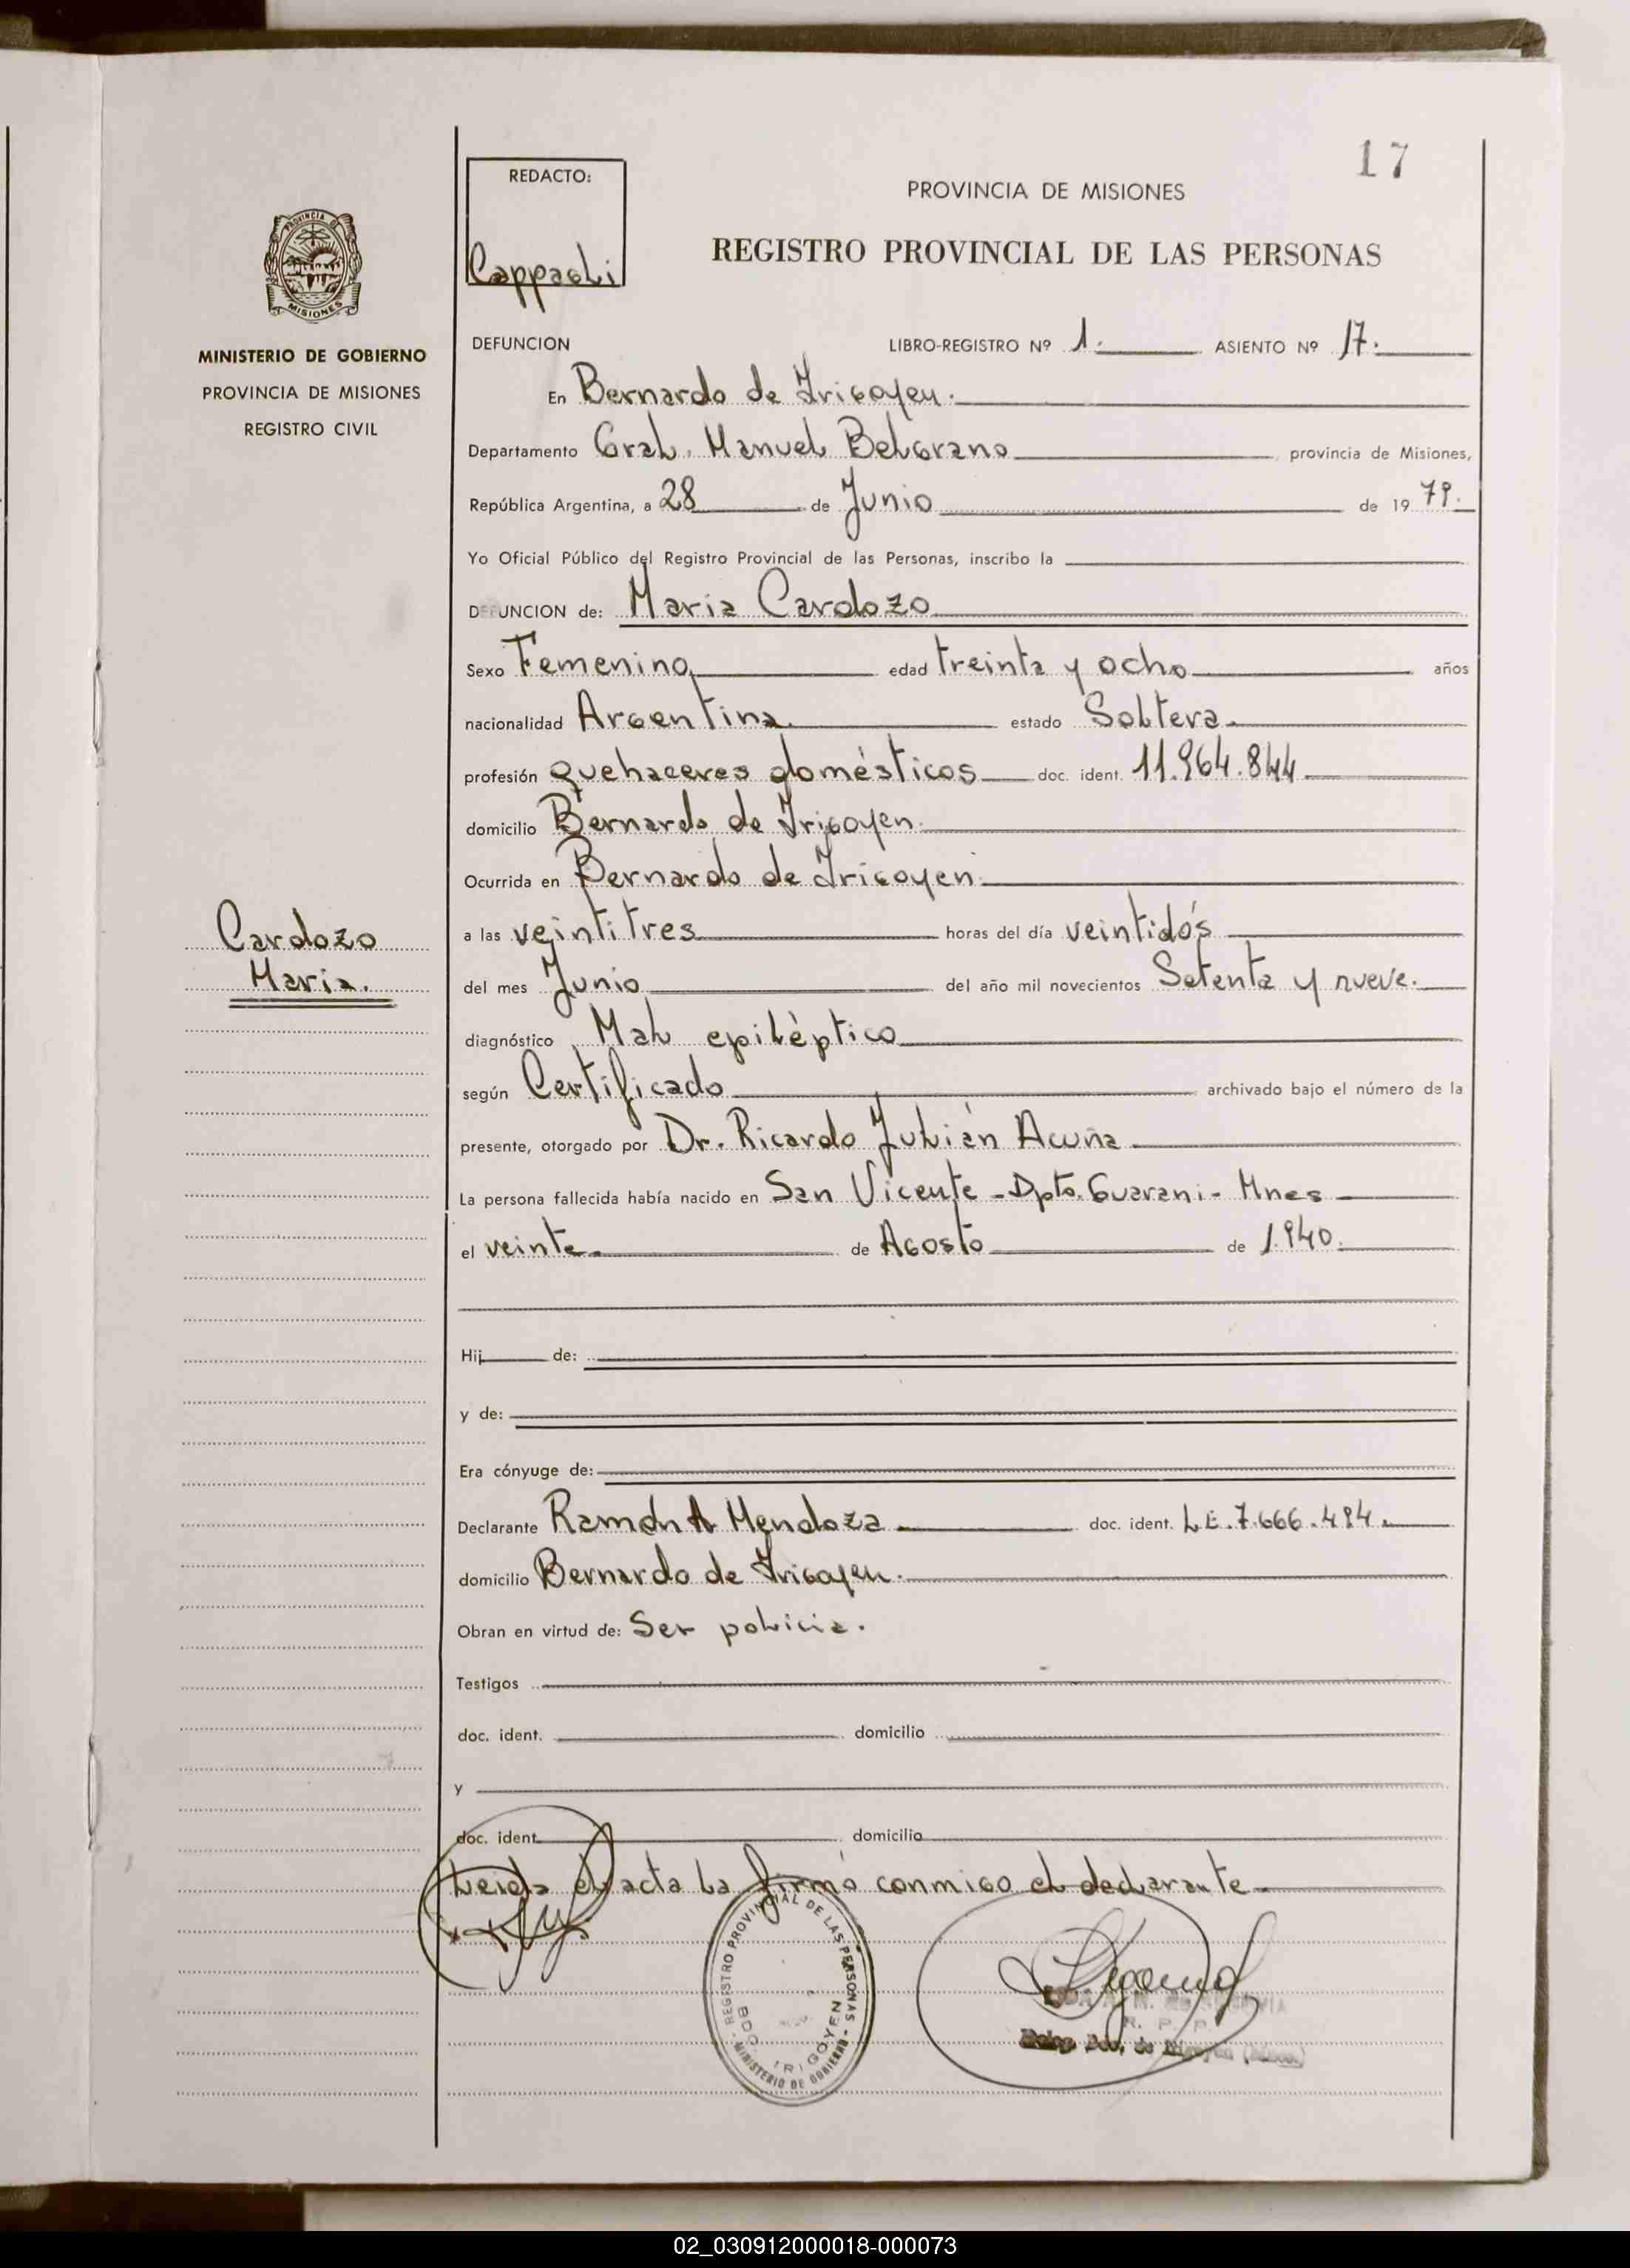 17
REDACTO:
Cappaoli
PROVINCIA DE MISIONES
REGISTRO PROVINCIAL DE LAS PERSONAS
PROVINCIA DE
MISIONES
MINISTERIO DE GOBIERNO
PROVINCIA DE MISIONES
REGISTRO CIVIL
DEFUNCION LIBRO-REGISTRO Nº 1. ASIENTO Nº 17.
En Bernardo de Irigoyen.
Departamento Gral. Manuel Belgrano provincia de Misiones,
República Argentina, a 28 de Junio de 1979.
Yo Oficial Público del Registro Provincial de las Personas, inscribo la
DEFUNCION de: Maria Cardozo
Sexo Femenino edad treinta y ocho años
nacionalidad Argentina. estado Soltera.
profesión quehaceres domésticos doc. ident. 11.964.844
domicilio Bernardo de Irigoyen.
Ocurrida en Bernardo de Irigoyen.
Cardozo
Maria.
a las veintitres horas del día veintidós
del mes Junio del año mil novecientos Setenta y nueve.
diagnóstico Mal epiléptico
según Certificado archivado bajo el número de la
presente, otorgado por Dr. Ricardo Julián Acuña
La persona fallecida había nacido en San Vicente - Dpto. Guarani - Mnes
el veinte de Agosto de 1.940.
Hij de:
y de:
Era cónyuge de:
Declarante Ramón A Mendoza doc. ident. L.E. 7.666.494.
domicilio Bernardo de Irigoyen.
Obran en virtud de: Ser policia.
Testigos
doc. ident. domicilio
y
doc. ident. domicilio
Leida el acta la firmó conmigo el declarante
REGISTRO PROVINCIAL DE LAS PERSONAS
BDO. IRIGOYEN
MINISTERIO DE GOBIERNO
R. P. P.
02_030912000018-000073